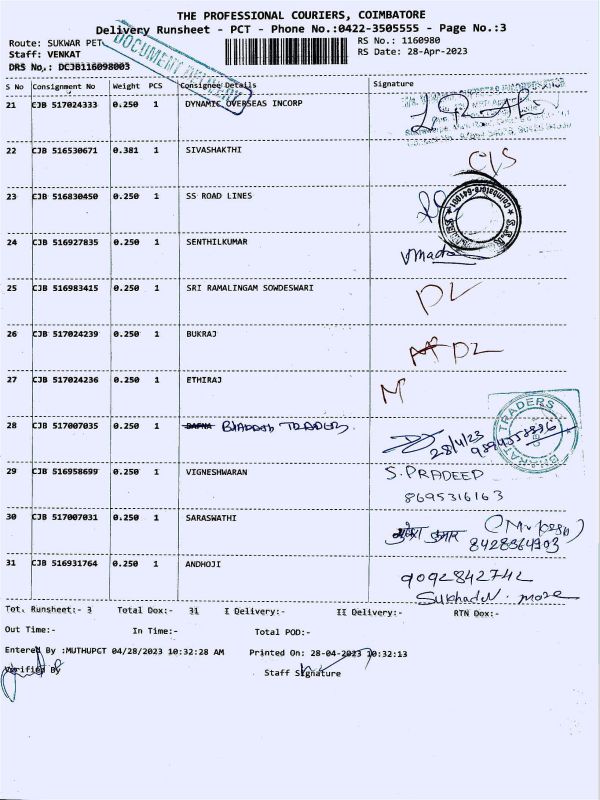 THE PROFESSIONAL COURIERS, COIMBATORE
Delivery Runsheet - PCT - Phone No.:0422-3505555 - Page No.:3
Route: SUKWAR PET
RS No.: 1160980
Staff: VENKAT
RS Date: 28-Apr-2023
DRS No,: DCJB116098003
DOCUMENT
S No Consignment No Weight PCS Consignee Details Signature
21 CJB 517024333 0.250 1 DYNAMIC OVERSEAS INCORP
22 CJB 516530671 0.381 1 SIVASHAKTHI
23 CJB 516830450 0.250 1 SS ROAD LINES
Coimbatore-641001
24 CJB 516927835 0.250 1 SENTHILKUMAR
25 CJB 516983415 0.250 1 SRI RAMALINGAM SOWDESWARI DL
26 CJB 517024239 0.250 1 BUKRAJ DL
27 CJB 517024236 0.250 1 ETHIRAJ M
28 CJB 517007035 0.250 1 TRADERS 28/4/23
BHARAT TRADERS
29 CJB 516958699 0.250 1 VIGNESHWARAN S. PRADEEP
8695316163
30 CJB 517007031 0.250 1 SARASWATHI
8428364903
31 CJB 516931764 0.250 1 ANDHOJI 9092842742
Sukhadev. more
Tot. Runsheet:- 3 Total Dox:- 31 I Delivery:- II Delivery:- RTN Dox:-
Out Time:- In Time:- Total POD:-
Entered By :MUTHUPCT 04/28/2023 10:32:28 AM Printed On: 28-04-2023 10:32:13
Verified By Staff Signature